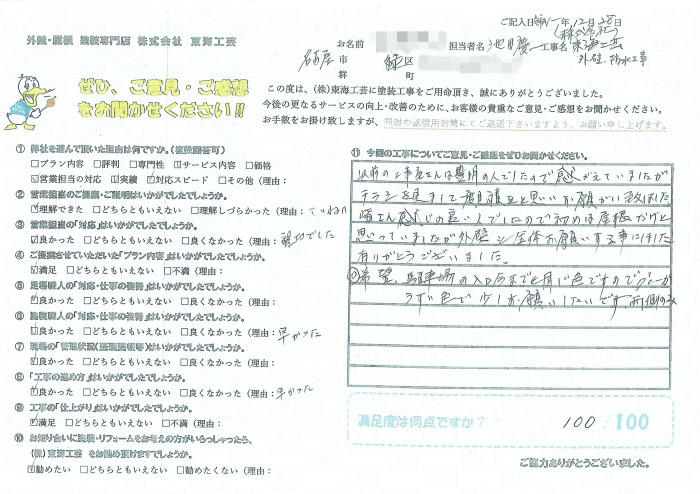 外壁・屋根 塗装専門店 株式会社 東海工芸
ご記入日 年12月28日
お名前
担当者名
工事名
名古屋市 緑区
郡 町
外壁・防水工事
ぜひ、ご意見・ご感想
をお聞かせください!!
この度は、(株)東海工芸に塗装工事をご用命頂き、誠にありがとうございました。
今後の更なるサービスの向上・改善のために、お客様の貴重なご意見・ご感想をお聞かせください。
お手数をお掛け致しますが、同封の返信用封筒にてご返送下さいますよう、お願い申し上げます。
① 弊社を選んで頂いた理由は何ですか。(複数回答可)
□プラン内容 □評判 □専門性 ☑サービス内容 □価格
☑営業担当の対応 □実績 ☑対応スピード □その他(理由:
② 営業担当のご提案・ご説明はいかがでしたでしょうか。
☑理解できた □どちらともいえない □理解しづらかった(理由: ていねい
③ 営業担当の「対応」はいかがでしたでしょうか。
☑良かった □どちらともいえない □良くなかった(理由: 親切でした
④ ご提案させていただいた「プラン内容」はいかがでしたでしょうか。
☑満足 □どちらともいえない □不満(理由:
⑤ 足場職人の「対応・仕事の後始」はいかがでしたでしょうか。
☑良かった □どちらともいえない □良くなかった(理由:
⑥ 塗装職人の「対応・仕事の後始」はいかがでしたでしょうか。
☑良かった □どちらともいえない □良くなかった(理由: 早かった
⑦ 現場の「管理状況(整理整頓等)はいかがでしたでしょうか。
☑良かった □どちらともいえない □良くなかった(理由:
⑧ 「工事の進め方」はいかがでしたでしょうか。
☑良かった □どちらともいえない □良くなかった(理由: 早かった
⑨ 工事の「仕上がり」はいかがでしたでしょうか。
☑満足 □どちらともいえない □不満(理由:
⑩ お知り合いに塗装・リフォームをお考えの方がいらっしゃったら、
(株)東海工芸 をお勧め頂けますでしょうか。
☑勧めたい □どちらともいえない □勧めたくない(理由:
⑪ 今回の工事についてご意見・ご感想をぜひお聞かせください。
以前の工事屋さんは 人でしたので ていましたが
チラシを見まして と思いお願い致しました
感じの良い人でしたので初めは屋根だけと
思っていましたが外壁 全体お願いする事にしました
ありがとうございました。
希望、駐車場の入口 同じ色ですのでグレーか
うすい色で少しお願いしたいです。
満足度は何点ですか? 100/100
ご協力ありがとうございました。